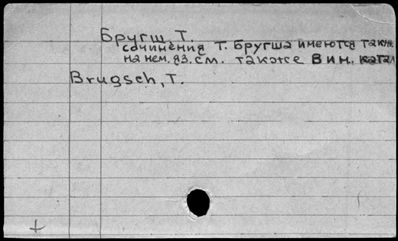 Бругш, Т.
сочинения Т. Бругша имеются также
на нем. яз. см. также в ин. катал
Brugsch, T.